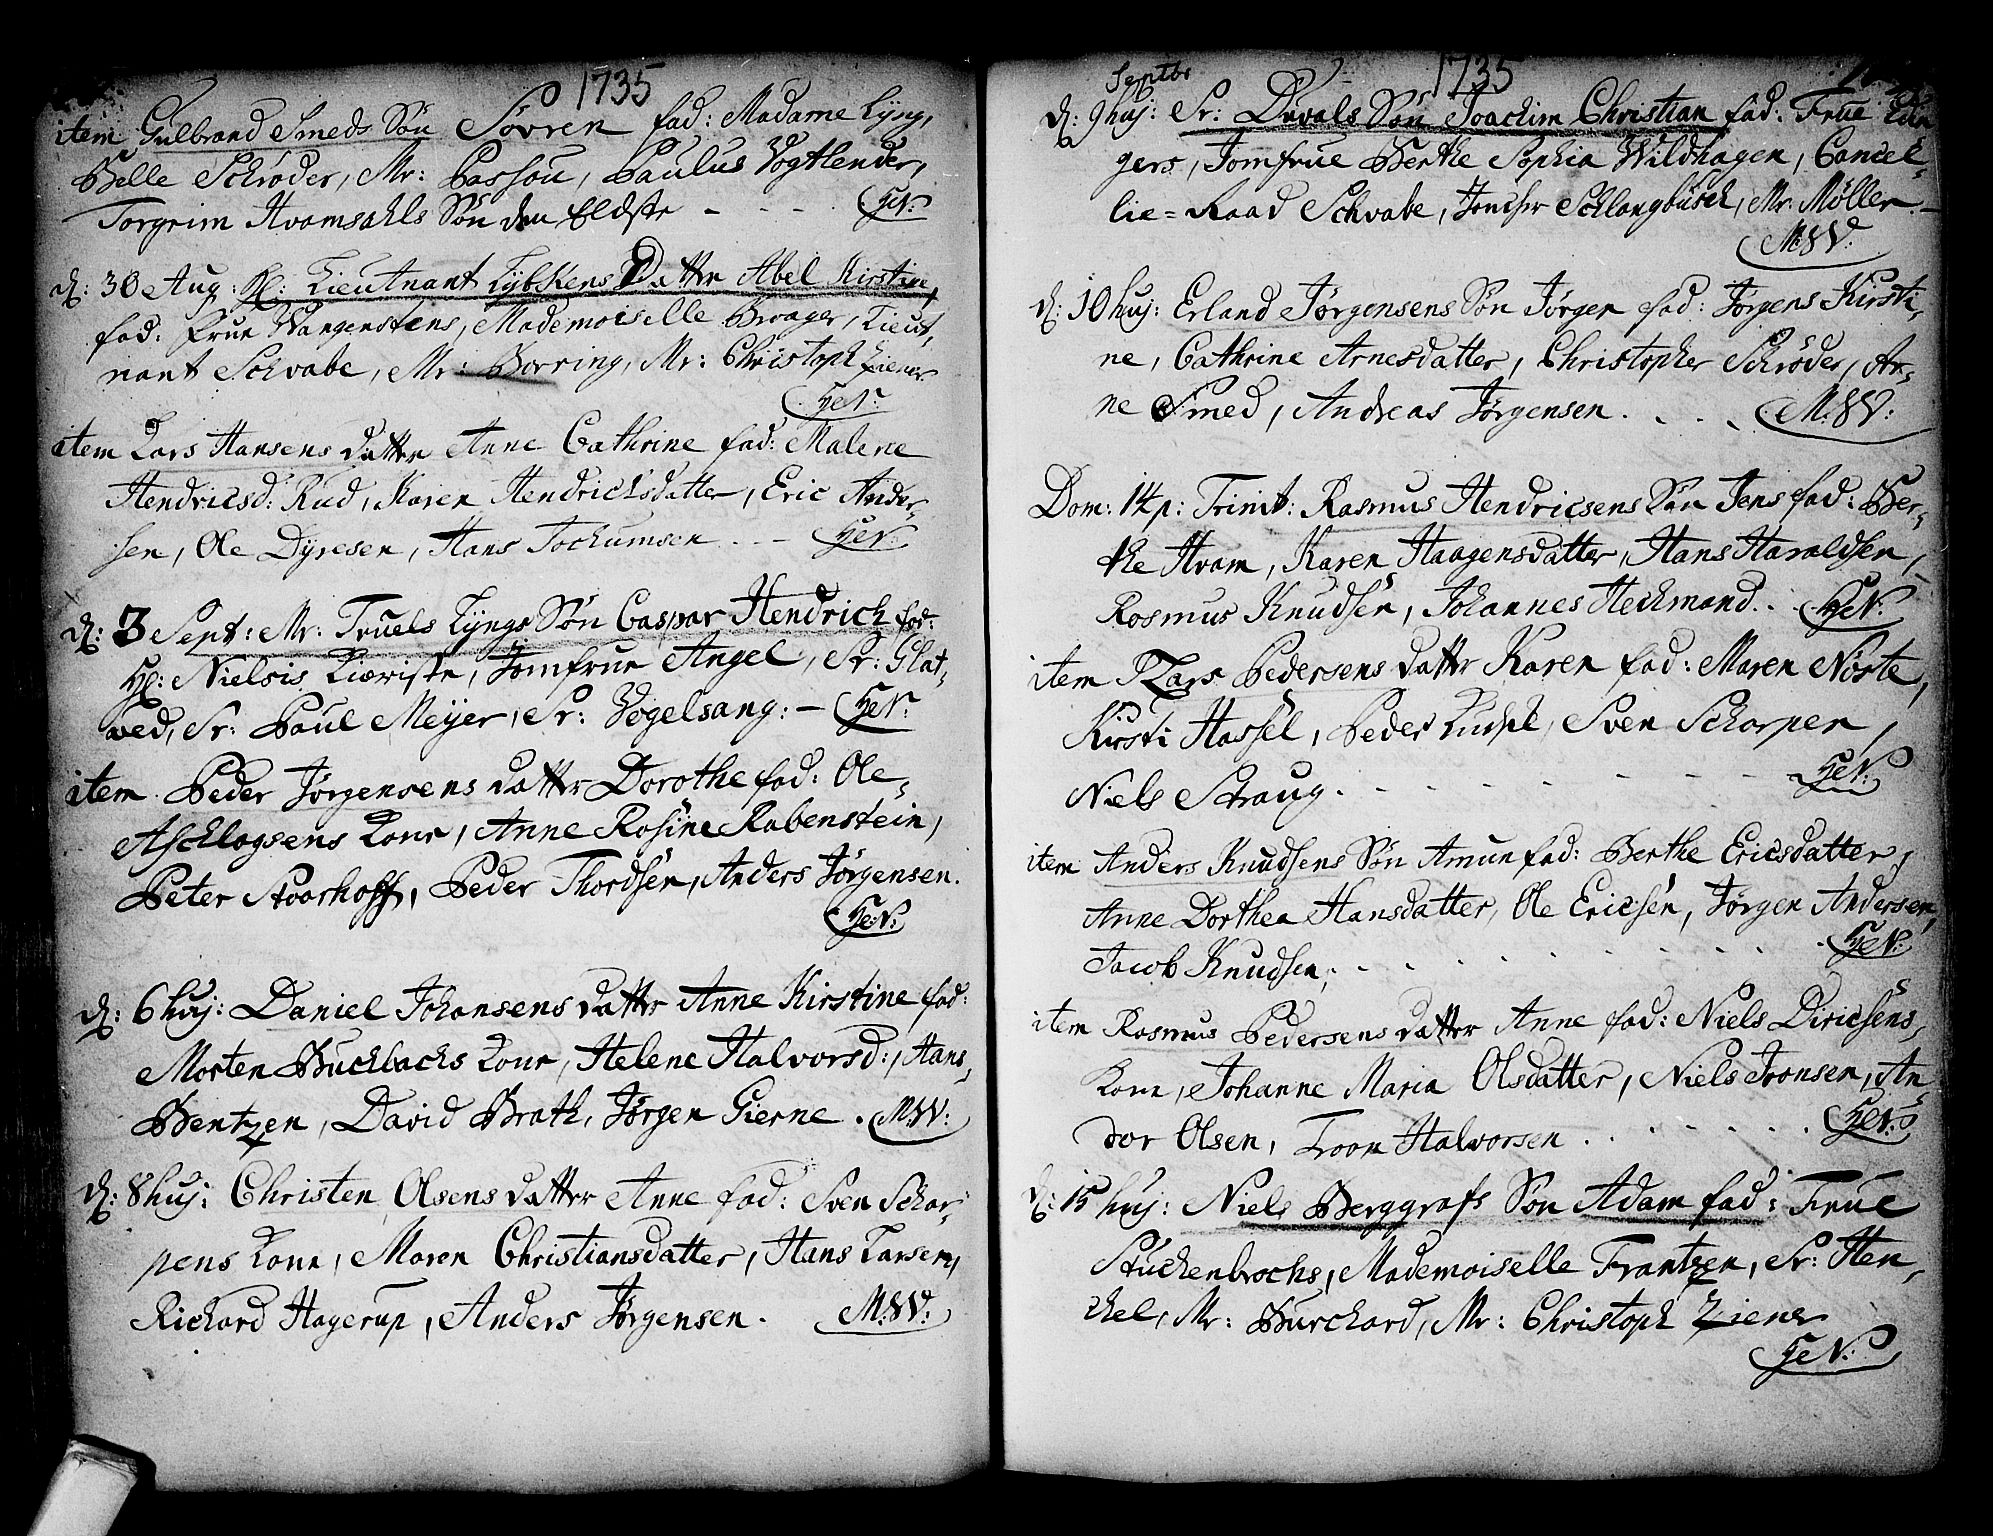 1735
item Gulbrand Smeds Søn Søvren fad: Madame Lyng,
Belle Schrøder, Mr: Passou, Paulus Vogtlender,
Torgrim Hvamsahls Søn den Eldste - - - HeN:
d: 30 Aug: Hr: Lieutnant Lybskens Datter Abel Kirstin,
fad: Frue Wangenstens, Mademoiselle Brager, Lieut,
nant Schvabe, Mr: Borring, Mr: Christoph Ziener
HeN:
item Lars Hansens datter Anne Cathrine fad: Malene
Hendricsd: Rud, Karen Hendrichsdatter, Eric Ander-
sen, Ole Dyresen, Hans Jochumsen . - HeN:
d: 3 Sept: Mr: Truels Lyngs Søn Caspar Hendrich fad:
Hr: Nielsis Kieriste, Jomfrue Angel, Sr: Glat,
ved, Sr: Paul Meyer, Sr: Vogelsang: - HeN:
item Peder Jørgensens datter Dorothe fad: Ole,
Aschlagsens Kone, Anne Rosine Rabenstein,
Peter Stoorhoff, Peder Thordsen, Anders Jørgensen.
HeN:
d: 6 huj: Daniel Johansens datter Anne Kirstine fad:
Morten Buchbachs Kone, Helene Halvorsd:, Hans,
Bentzen, David Brath, Jørgen Gierne . MW:
d: 8 huj: Christen Olsens datter Anne fad: Sven Schar-
pens Kone, Maren Christiansdatter, Hans Larsen,
Richard Hagerup, Anders Jørgensen. M:W:
1735
Septbr
d: 9 huj: Sr: Duvals Søn Joachim Christian fad: Frue
gers, Jomfrue Berthe Sophia Wildhagen, Cancel-
lie=Raad Schvabe, Joncher Schlangbusch, Mr: Møller.-
MW:
d: 10 huj: Erland Jørgensens Søn Jørgen fad: Jørgens Kirsti,
ne, Cathrine Arnesdatter, Christopher Schrøder, Ar,
ne Smed, Andreas Jørgensen . . . M:W:
Dom: 14 p: Trinit: Rasmus Hendricsens Søn Jens fad: Ber,
the Hvam, Karen Haagensdatter, Hans Haraldsen,
Rasmus Knudsen, Johannes Heckmand. . HeN:
item Lars Pedersens datter Karen fad: Maren Nørte,
Kirsti Hassel, Peder Kudsk, Sven Scharpen,
Niels Straug . - - - - - HeN:
item Anders Knudsens Søn Amun fad: Berthe Ericsdatter,
Anne Dorthea Hansdatter, Ole Ericsen, Jørgen Andersen,
Jacob Knudsen, . - - - - - HeN:
item Rasmus Pedersens datter Anne fad: Niels Diricsens,
Kone, Johanne Maria Olsdatter, Niels Ironsen, An
dor Olsen, Troon Halvorsen . . . . . . HeN:
d: 15 huj: Niels Berggrafs Søn Adam fad: Frue
Stuckenbrochs, Mademoiselle Frantzen, Sr: Hen,
chel, Mr: Burchard, Mr: Christoph Ziener
HeN: